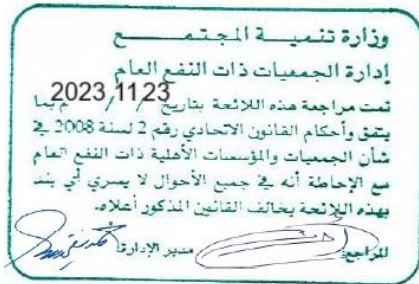 وزارة تنميـــة المجتمـــــع
إدارة الجمعيات ذات النفع العام
تمت مراجعة هذه اللائحة بتاريخ 2023 11 23 / / م بما
يتفق وأحكام القانون الاتحادي رقم 2 لسنة 2008 في
شأن الجمعيات والمؤسسات الأهلية ذات النفع العام
مع الإحاطة أنه في جميع الأحوال لا يسري أي بند
بهذه اللائحة يخالف القانون المذكور أعلاه.
المراجع مدير الإدارة